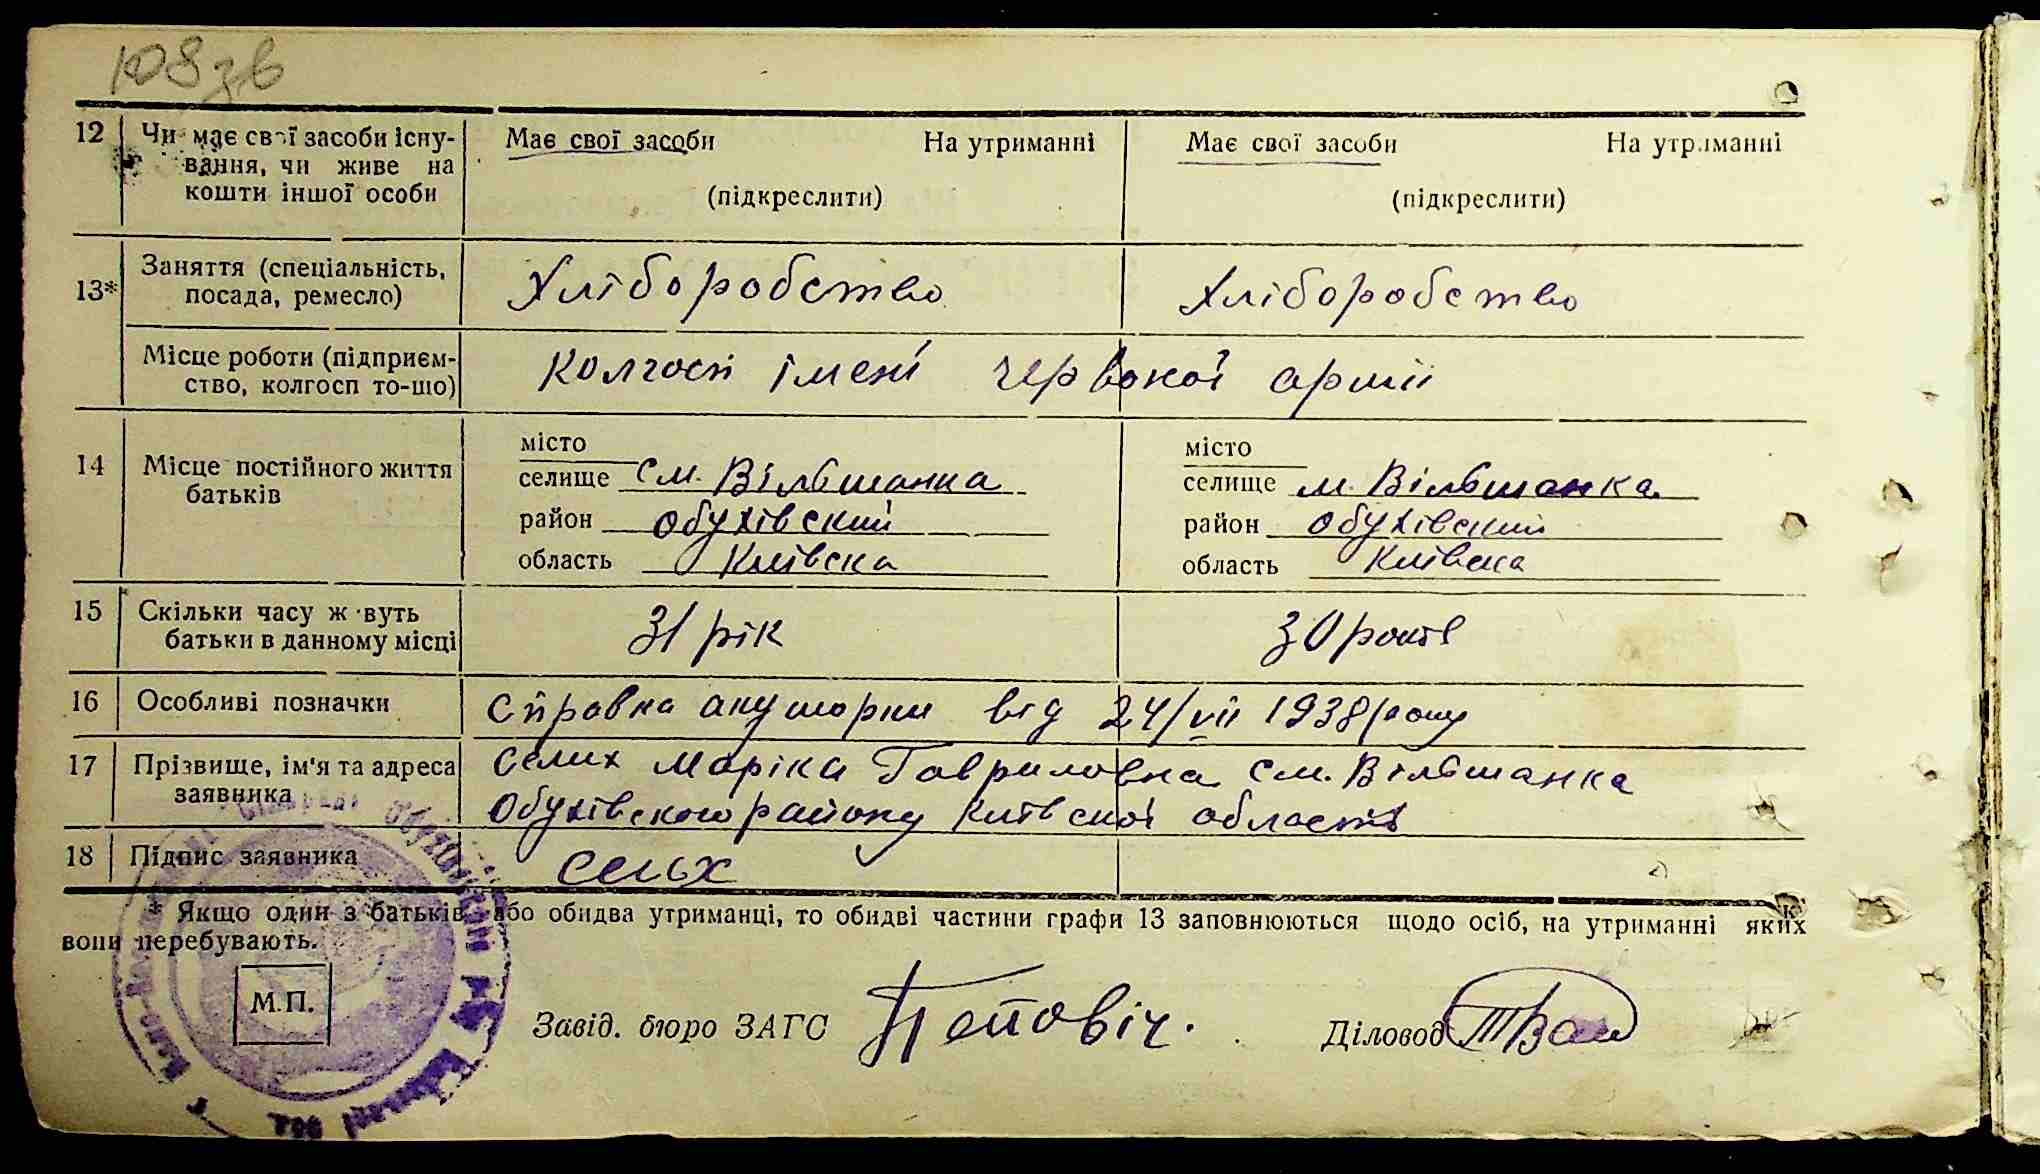 108зв
12 Чи має свої засоби існу- Має свої засоби На утриманні Має свої засоби На утриманні
вання, чи живе на
кошти іншої особи (підкреслити) (підкреслити)
13* Заняття (спеціальність, посада, ремесло) Хліборобство Хліборобство
Місце роботи (підприєм- Колгосп імені червоної армії
ство, колгосп то-що)
14 Місце постійного життя батьків
місто місто
селище см. Вільшанка селище м. Вільшанка
район Обухівский район Обухівский
область Київска область Київска
15 Скільки часу живуть 31 рік 30 років
батьки в данному місці
16 Особливі позначки Справка акушорки від 24/VII 1938 року
17 Прізвище, ім'я та адреса Гавриловна см. Вільшанка
заявника Обухівского району Київскої області
18 Підпис заявника
* Якщо один з батьків, або обидва утриманці, то обидві частини графи 13 заповнюються щодо осіб, на утриманні яких
вони перебувають.
М.П.
Завід. бюро ЗАГС Діловод